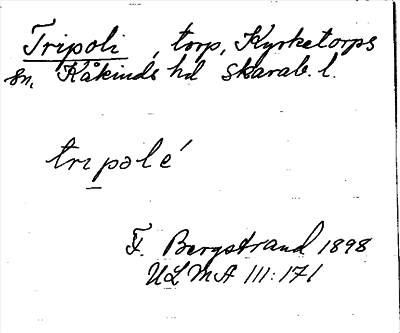 Tripoli, torp, Kyrketorps
sn, Kåkinds hd Skarab. l.
trıpəlé
F. Bergstrand 1898
ULMA III:171